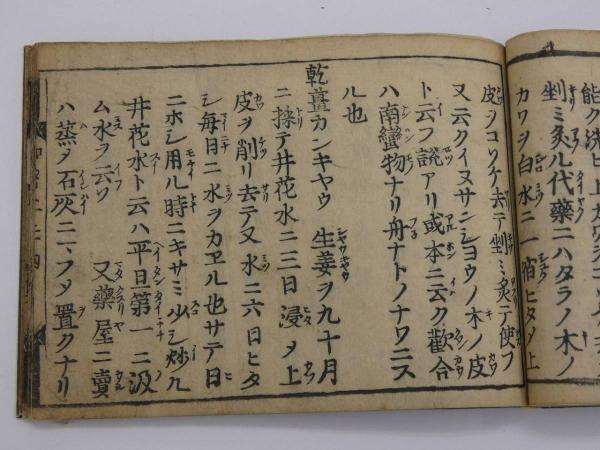 能ク洗ヒ上カワヲコソケ去
剉ミ炙ル代藥ニハタラノ木ノ
カワヲ白水ニ一宿ヒタシ上
皮ヲコソケ去テ剉ミ炙テ使フ
又云クイヌサンシヨウノ木ノ皮
ト云フ説アリ或本ニ云ク歡合
ハ南蠻物ナリ舟ナトノナワニス
ル也
乾薑カンキヤウ 生姜ヲ九十月
ニ採テ井花水ニ三日浸ヲ上
皮ヲ削リ去テ又水ニ六日ヒタ
シ毎日ニ水ヲカヱル也サテ日
ニホシ用ル時ニキサミ少シ炒ル
井花水ト云ハ平旦第一ニ汲
ム水ヲ云フ 又藥屋ニ賣
ハ蒸ヲ石灰ニマフメ置クナリ